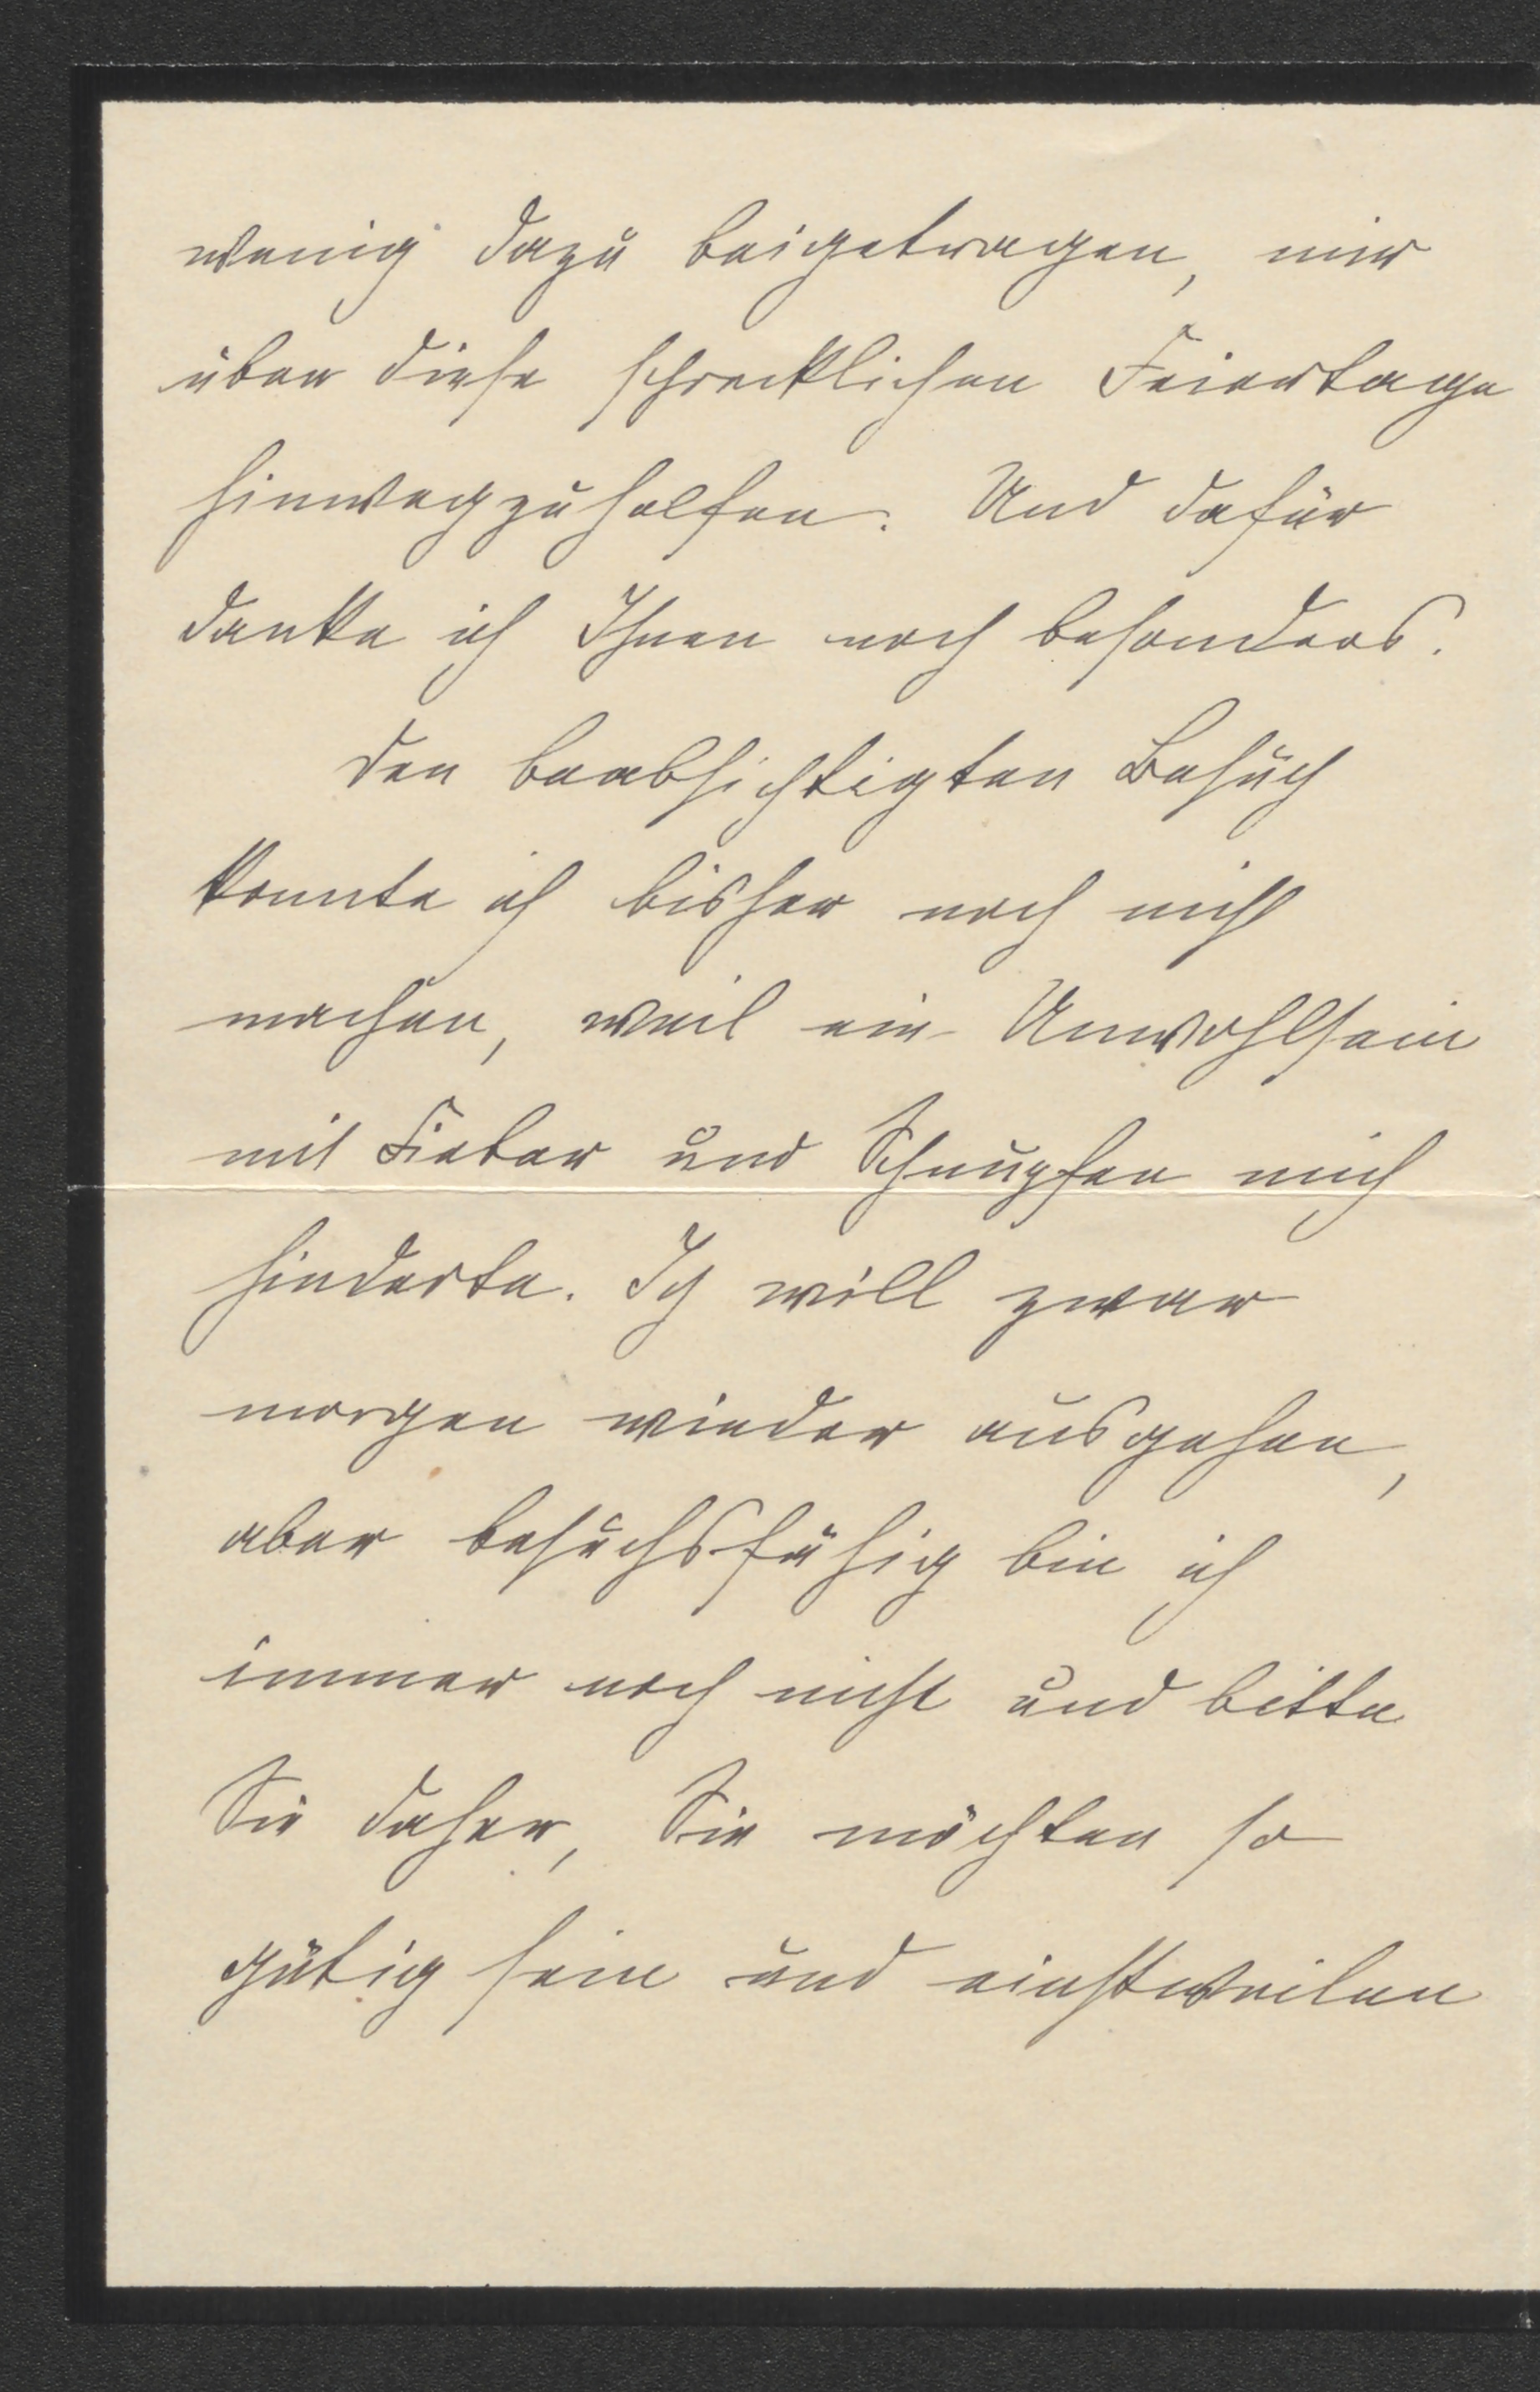 wenig dazu beigetragen, mir
über diese schrecklichen Feiertage
hinwegzuhelfen. Und dafür
danke ich Ihnen noch besonders.
Den beabsichtigten Besuch
konnte ich bisher noch nicht
machen, weil ein Unwohlsein
mit Fieber und Schnupfen mich
hinderte. Ich will zwar
morgen wieder ausgehen,
aber besuchsfähig bin ich
immer noch nicht und bitte
Sie daher, Sie möchten so
gütig sein und einstweilen